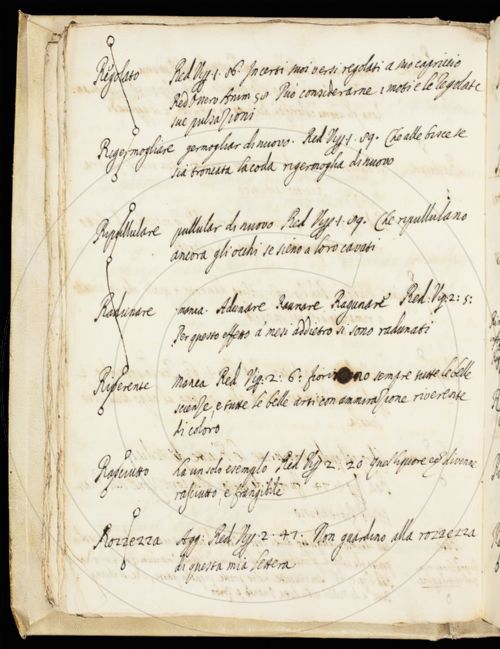 Regolato Red Vip. 1. 86. In certi suoi versi regolati a suo capriccio
Red Osserv. Anim. 58 Può considerarne i moti e le regolate
sue pulsazioni
Rigermogliare germogliar di nuovo. Red. Vip. 1. 89. Che alle bisce se
sia troncata la coda rigermoglia di nuovo
Ripullulare pullular di nuovo Red Vip. 1. 89. Che ripullulano
ancora gli occhi se sieno a loro cavati
Radunare manca. Adunare Raunare Ragunare Red. Vip. 2: 5:
Per questo effetto a' mesi addietro si sono radunati
Riverente manca Red Vip. 2: 6: sempre tutte le belle
scienze, e tutte le belle arti con ammirazione riverente
di coloro
Rasciutto ha un solo esemplo Red Vip. 2. 20 quel liquore divenne
rasciutto, e frangibile
Rozzezza Agg: Red. Vip. 2 41. Non guardino alla rozzezza
di questa mia lettera